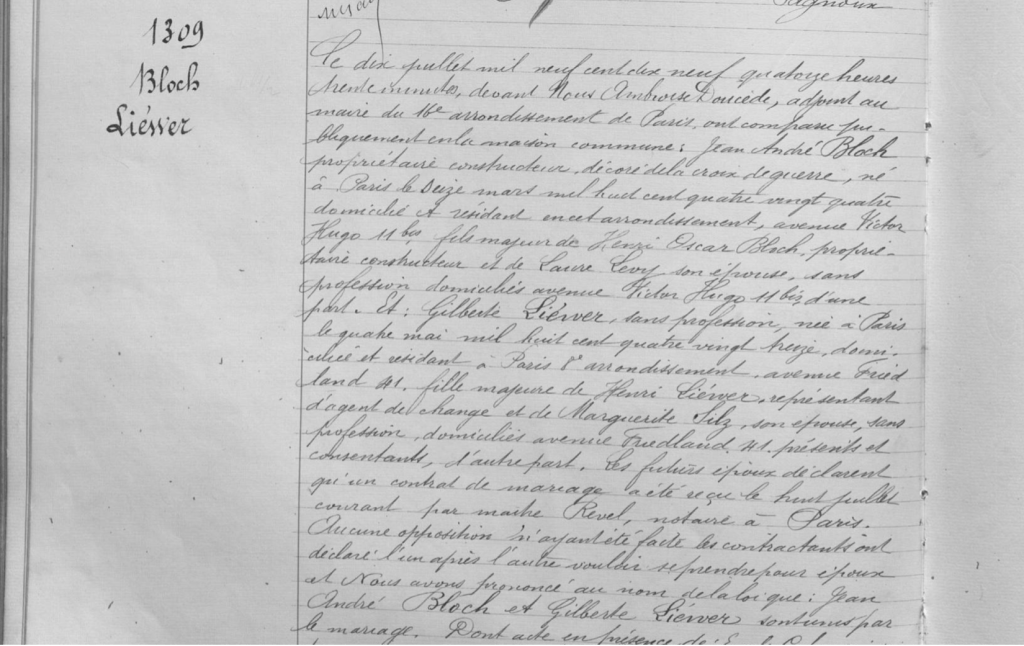 1309
Bloch
Liévver
Le dix juillet mil neuf cent dix neuf quatorze heures
trente minutes, devant Nous Ambroise Doucède, adjoint au
maire du 16e arrondissement de Paris, ont comparu pu-
bliquement en la maison commune: Jean André Bloch
propriétaire constructeur, décoré de la croix de guerre, né
à Paris le seize mars mil huit cent quatre vingt quatre
domicilié et résidant en cet arrondissement, avenue Victor
Hugo 11 bis, fils majeur de Henri Oscar Bloch, proprié-
taire constructeur et de Laure Levy son épouse, sans
profession domiciliés avenue Victor Hugo 11 bis, d'une
part. Et: Gilberte Liévver, sans profession, née à Paris
le quatre mai mil huit cent quatre vingt treize, domi-
ciliée et résidant à Paris 8e arrondissement, avenue Fried
land 41. fille majeure de Henri Liévver, représentant
d'agent de change et de Marguerite Silz, son épouse, sans
profession, domiciliés avenue Friedland, 41. présents et
consentants, d'autre part. Les futurs époux déclarent
qu'un contrat de mariage a été reçu le huit juillet
courant par maître Revel, notaire à Paris.
Aucune opposition n'ayant été faite les contractants ont
déclaré l'un après l'autre vouloir se prendre pour époux
et Nous avons prononcé au nom de la loi que: Jean
André Bloch et Gilberte Liévver sont unis par
le mariage. Dont acte en présence de: